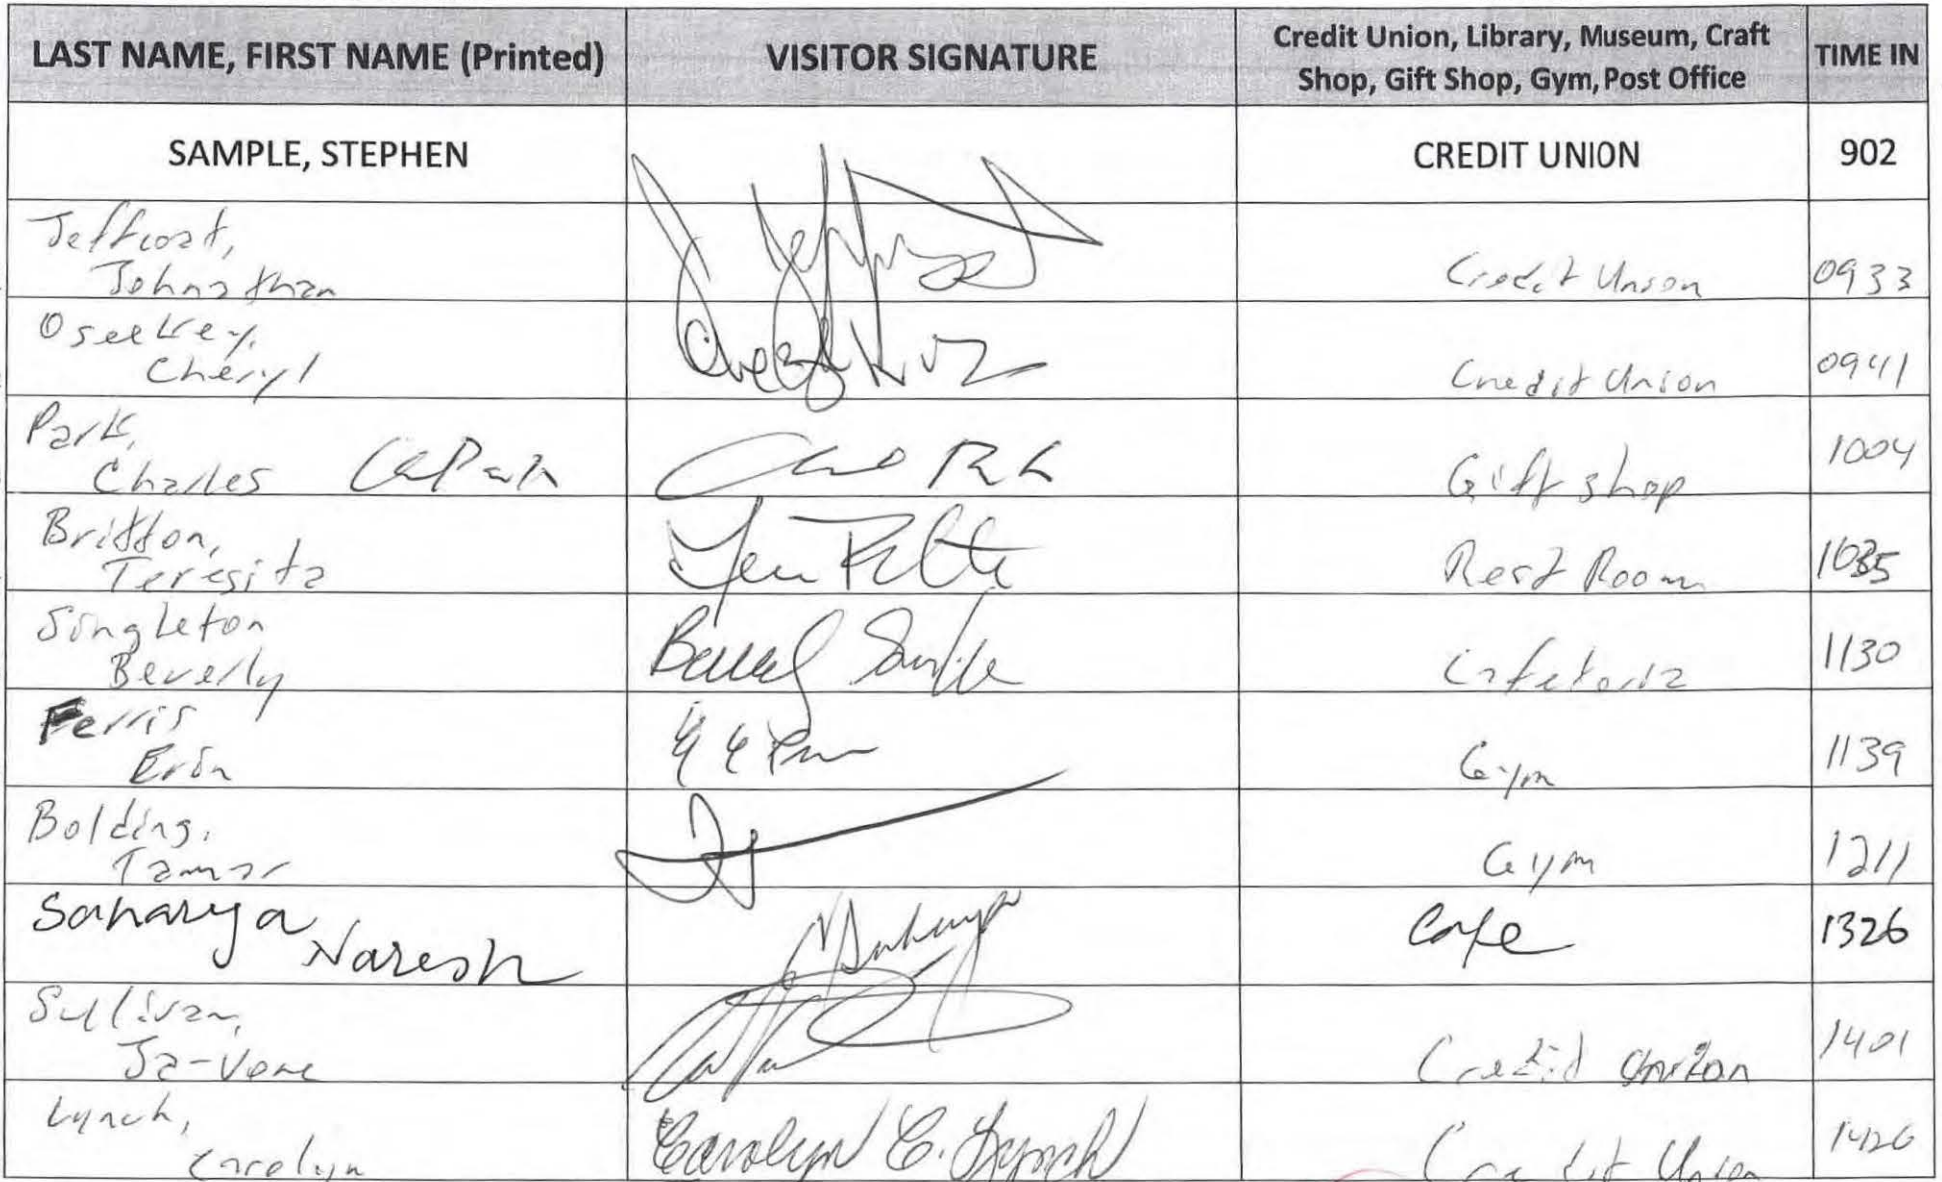 LAST NAME, FIRST NAME (Printed)
VISITOR SIGNATURE
Credit Union, Library, Museum, Craft
Shop, Gift Shop, Gym, Post Office
TIME IN
SAMPLE, STEPHEN
CREDIT UNION
902
Johnathan
Credit Union
0933
Cheryl
Credit Union
0941
Park,
Charles
Gift shop
1004
Britton,
Teresita
Rest Room
Singleton
Beverly
Cafeteria
1130
Ferris
Erin
Gym
1139
Bolding,
Tamar
Gym
1211
Naresh
Cafe
1326
Sullivan,
Credit Union
1401
Lynch,
Carolyn
Carolyn C. Lynch
Credit Union
1426